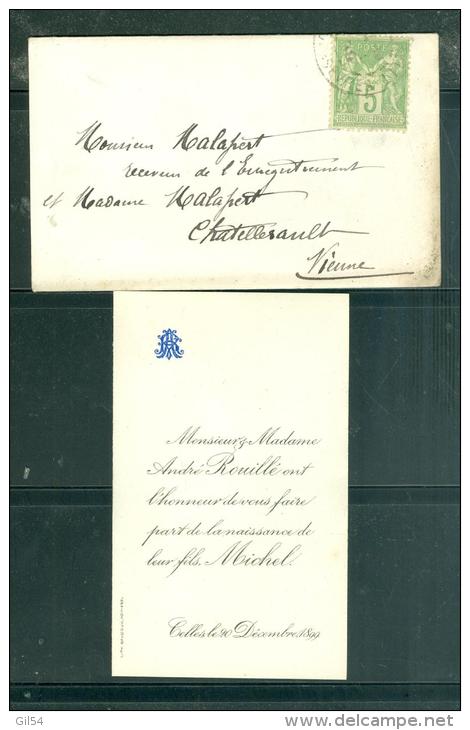 POSTE
5
REPUBLIQUE FRANCAISE
Monsieur Malapert
receveur de l'Enregistrement
et Madame Malapert
Chatellerault
Vienne
AR
Monsieur & Madame
André Rouillé ont
l'honneur de vous faire
part de la naissance de
leur fils, Michel.
Celles, le 20 Décembre 1899
Gil54
www.delcampe.net